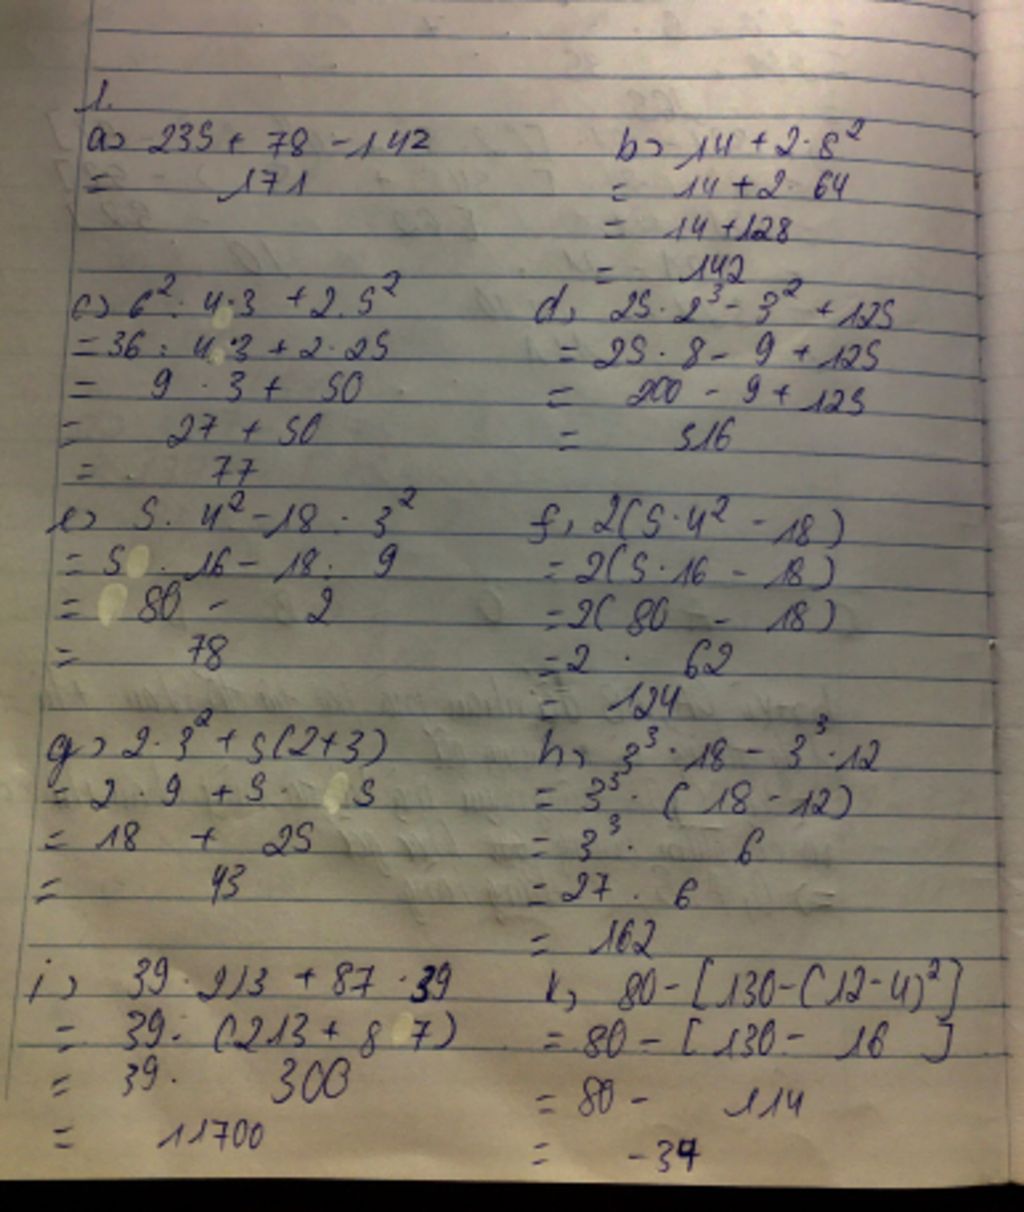 1.
a) 235 + 78 - 142
= 171
b) 14 + 2 · 8²
= 14 + 2 · 64
= 14 + 128
= 142
c) 6² : 4 · 3 + 2 . 5²
= 36 : 4 · 3 + 2 · 25
= 9 · 3 + 50
= 27 + 50
= 77
d) 25 · 2³ - 3² + 125
= 25 · 8 - 9 + 125
= 200 - 9 + 125
= 316
e) 5 . 4² - 18 : 3²
= 5 . 16 - 18 : 9
= 80 - 2
= 78
f) 2(5 · 4² - 18)
= 2(5 · 16 - 18)
= 2( 80 - 18)
= 2 · 62
= 124
g) 2 · 3² + 5(2+3)
= 2 · 9 + 5 5
= 18 + 25
= 43
h) 3³ · 18 - 3³ · 12
= 3³ · ( 18 - 12)
= 3³ · 6
= 27 . 6
= 162
i) 39 · 213 + 87 · 39
= 39 . (213 + 87)
= 39 . 300
= 11700
k) 80 - [130 - (12 - 4)²]
= 80 - [130 - 16 ]
= 80 - 114
= -34